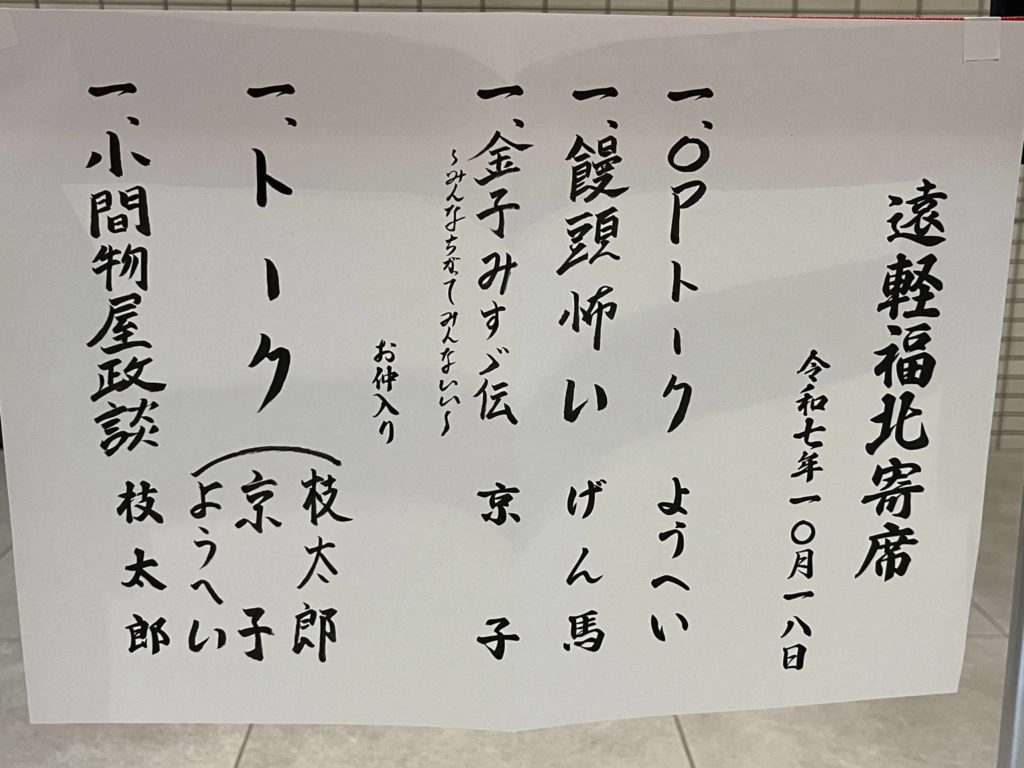 遠軽福北寄席
令和七年一〇月一八日
一、OPトーク ようへい
一、饅頭怖い げん馬
一、金子みすゞ伝 京子
〜みんなちがてみんないい〜
お仲入り
一、トーク 枝太郎 京子 ようへい
一、小間物屋政談 枝太郎